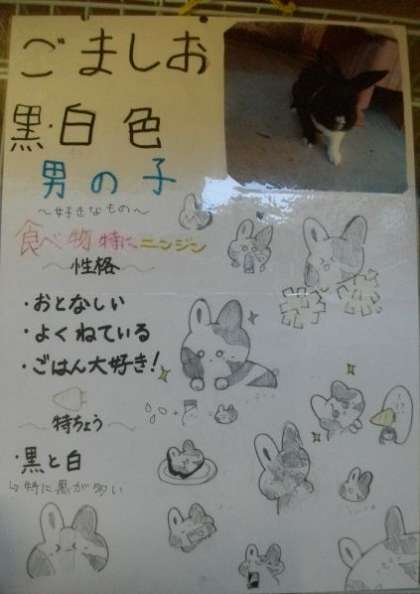 ごましお
黒・白色
男の子
～好きなもの～
食べ物 特に、ニンジン
～性格～
・おとなしい
・よくねている
・ごはん大好き！
～特ちょう～
・黒と白
↳特に黒が多い